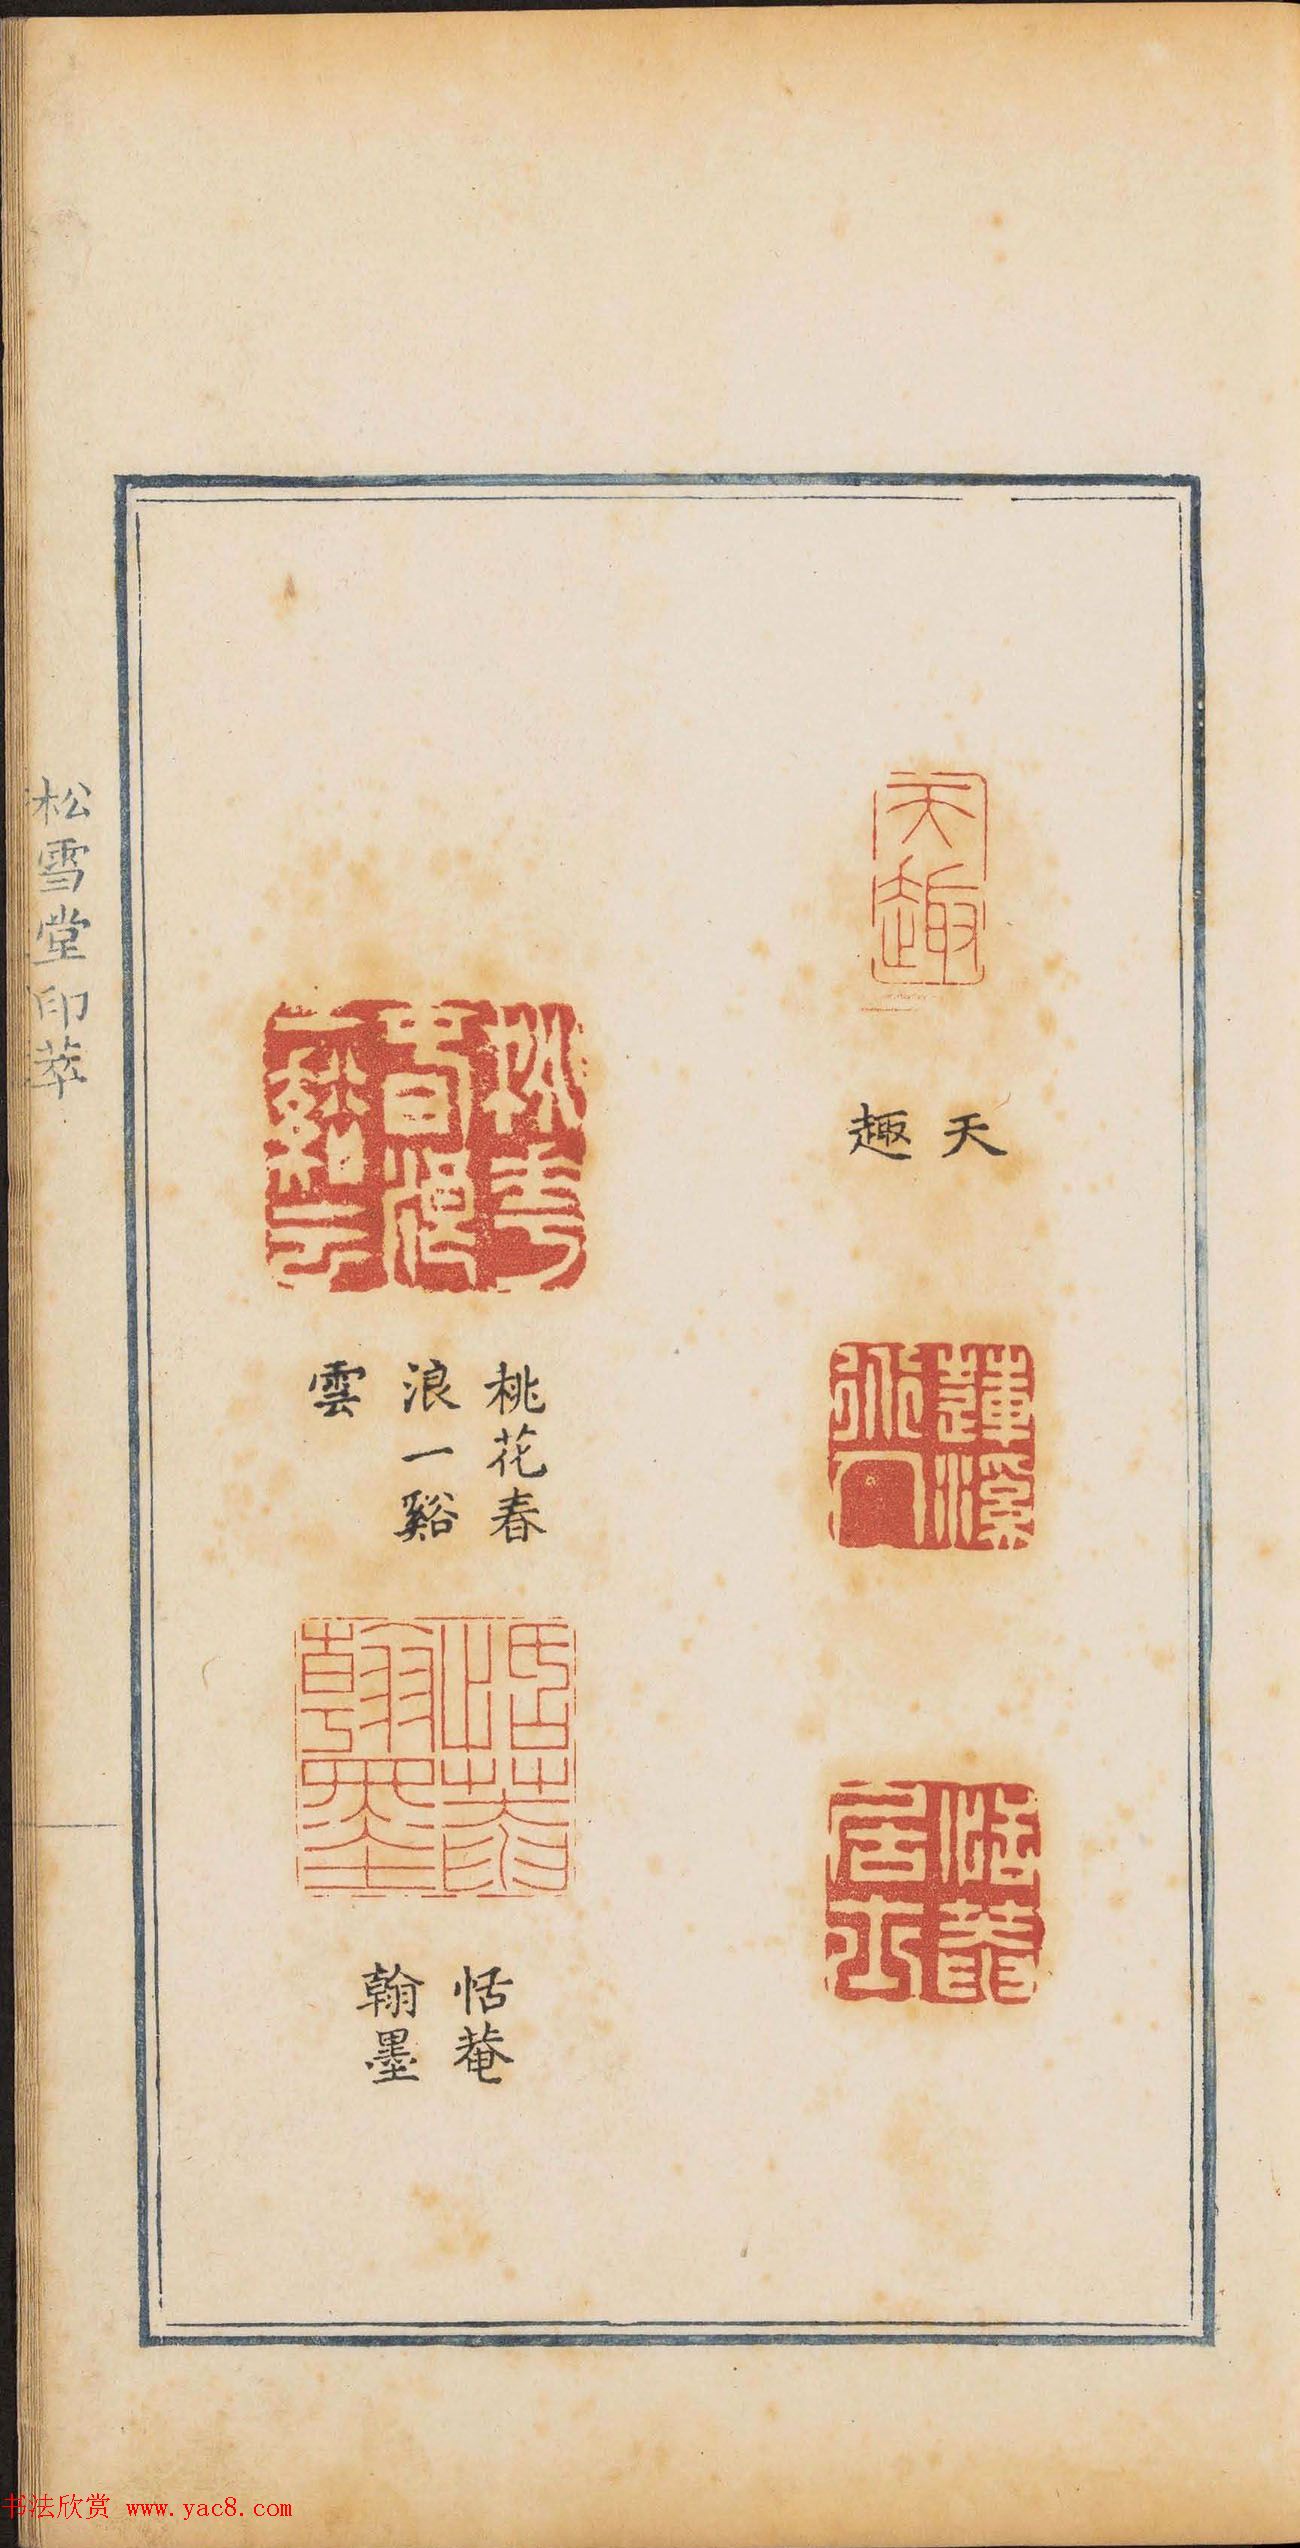 天
趣
天
趣
蓮溪
恬菴
居士
桃花
春浪
一谿雲
桃花春
浪一谿
雲
恬菴
翰墨
恬菴
翰墨
松雪堂印萃
书法欣赏 www.yac8.com